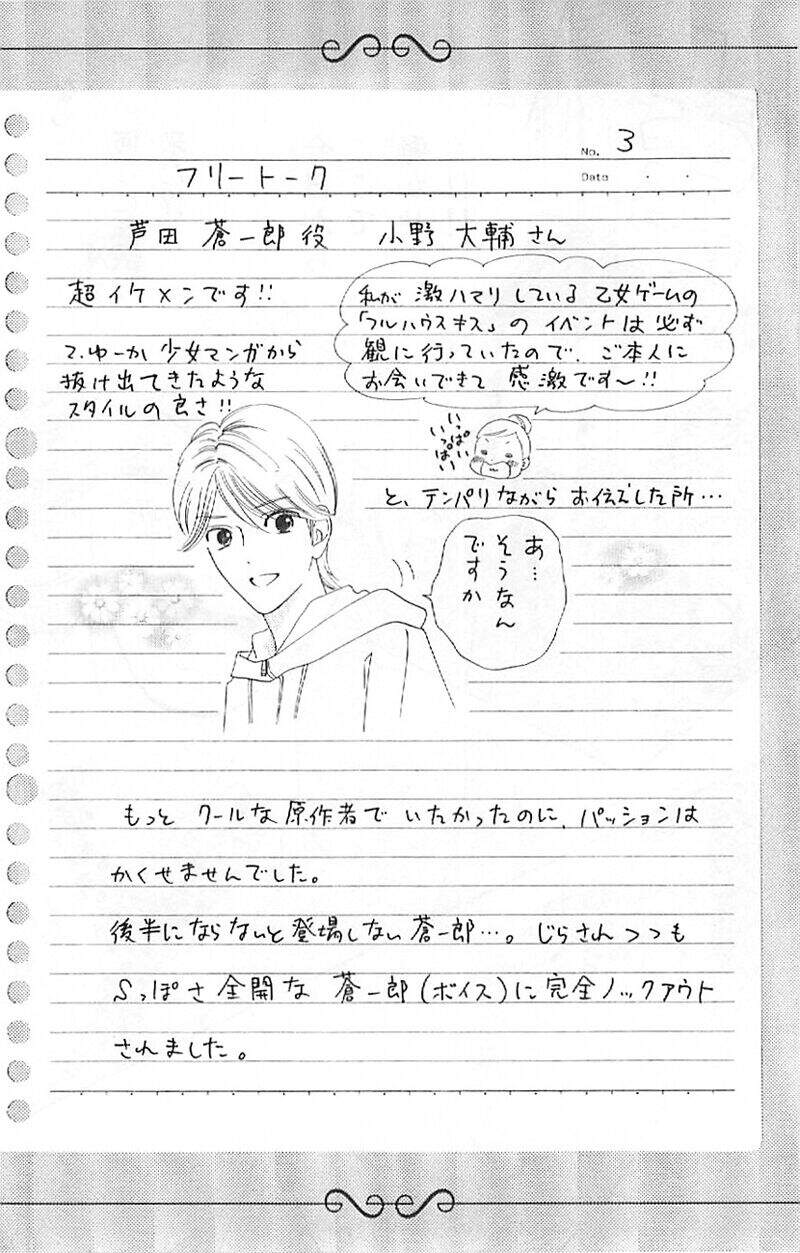 No. 3
Date ・ ・
フリートーク
芦田 蒼一郎役 小野 大輔さん
超イケメンです!!
て、ゆーか 少女マンガから
抜け出てきたような
スタイルの良さ!!
私が 激ハマりしている 乙女ゲームの
「フルハウスキス」の イベントは 必ず
観に行っていたので、ご本人に
お会いできて 感激です〜!!
いっぱい
いっぱい
と、テンパりながら お伝えした所…
あ…
そうなん
ですか
もっと クールな 原作者で いたかったのに、パッションは
かくせませんでした。
後半にならないと登場しない 蒼一郎…。じらさんつつも
Sっぽさ 全開な 蒼一郎(ボイス)に 完全ノックアウト
されました。